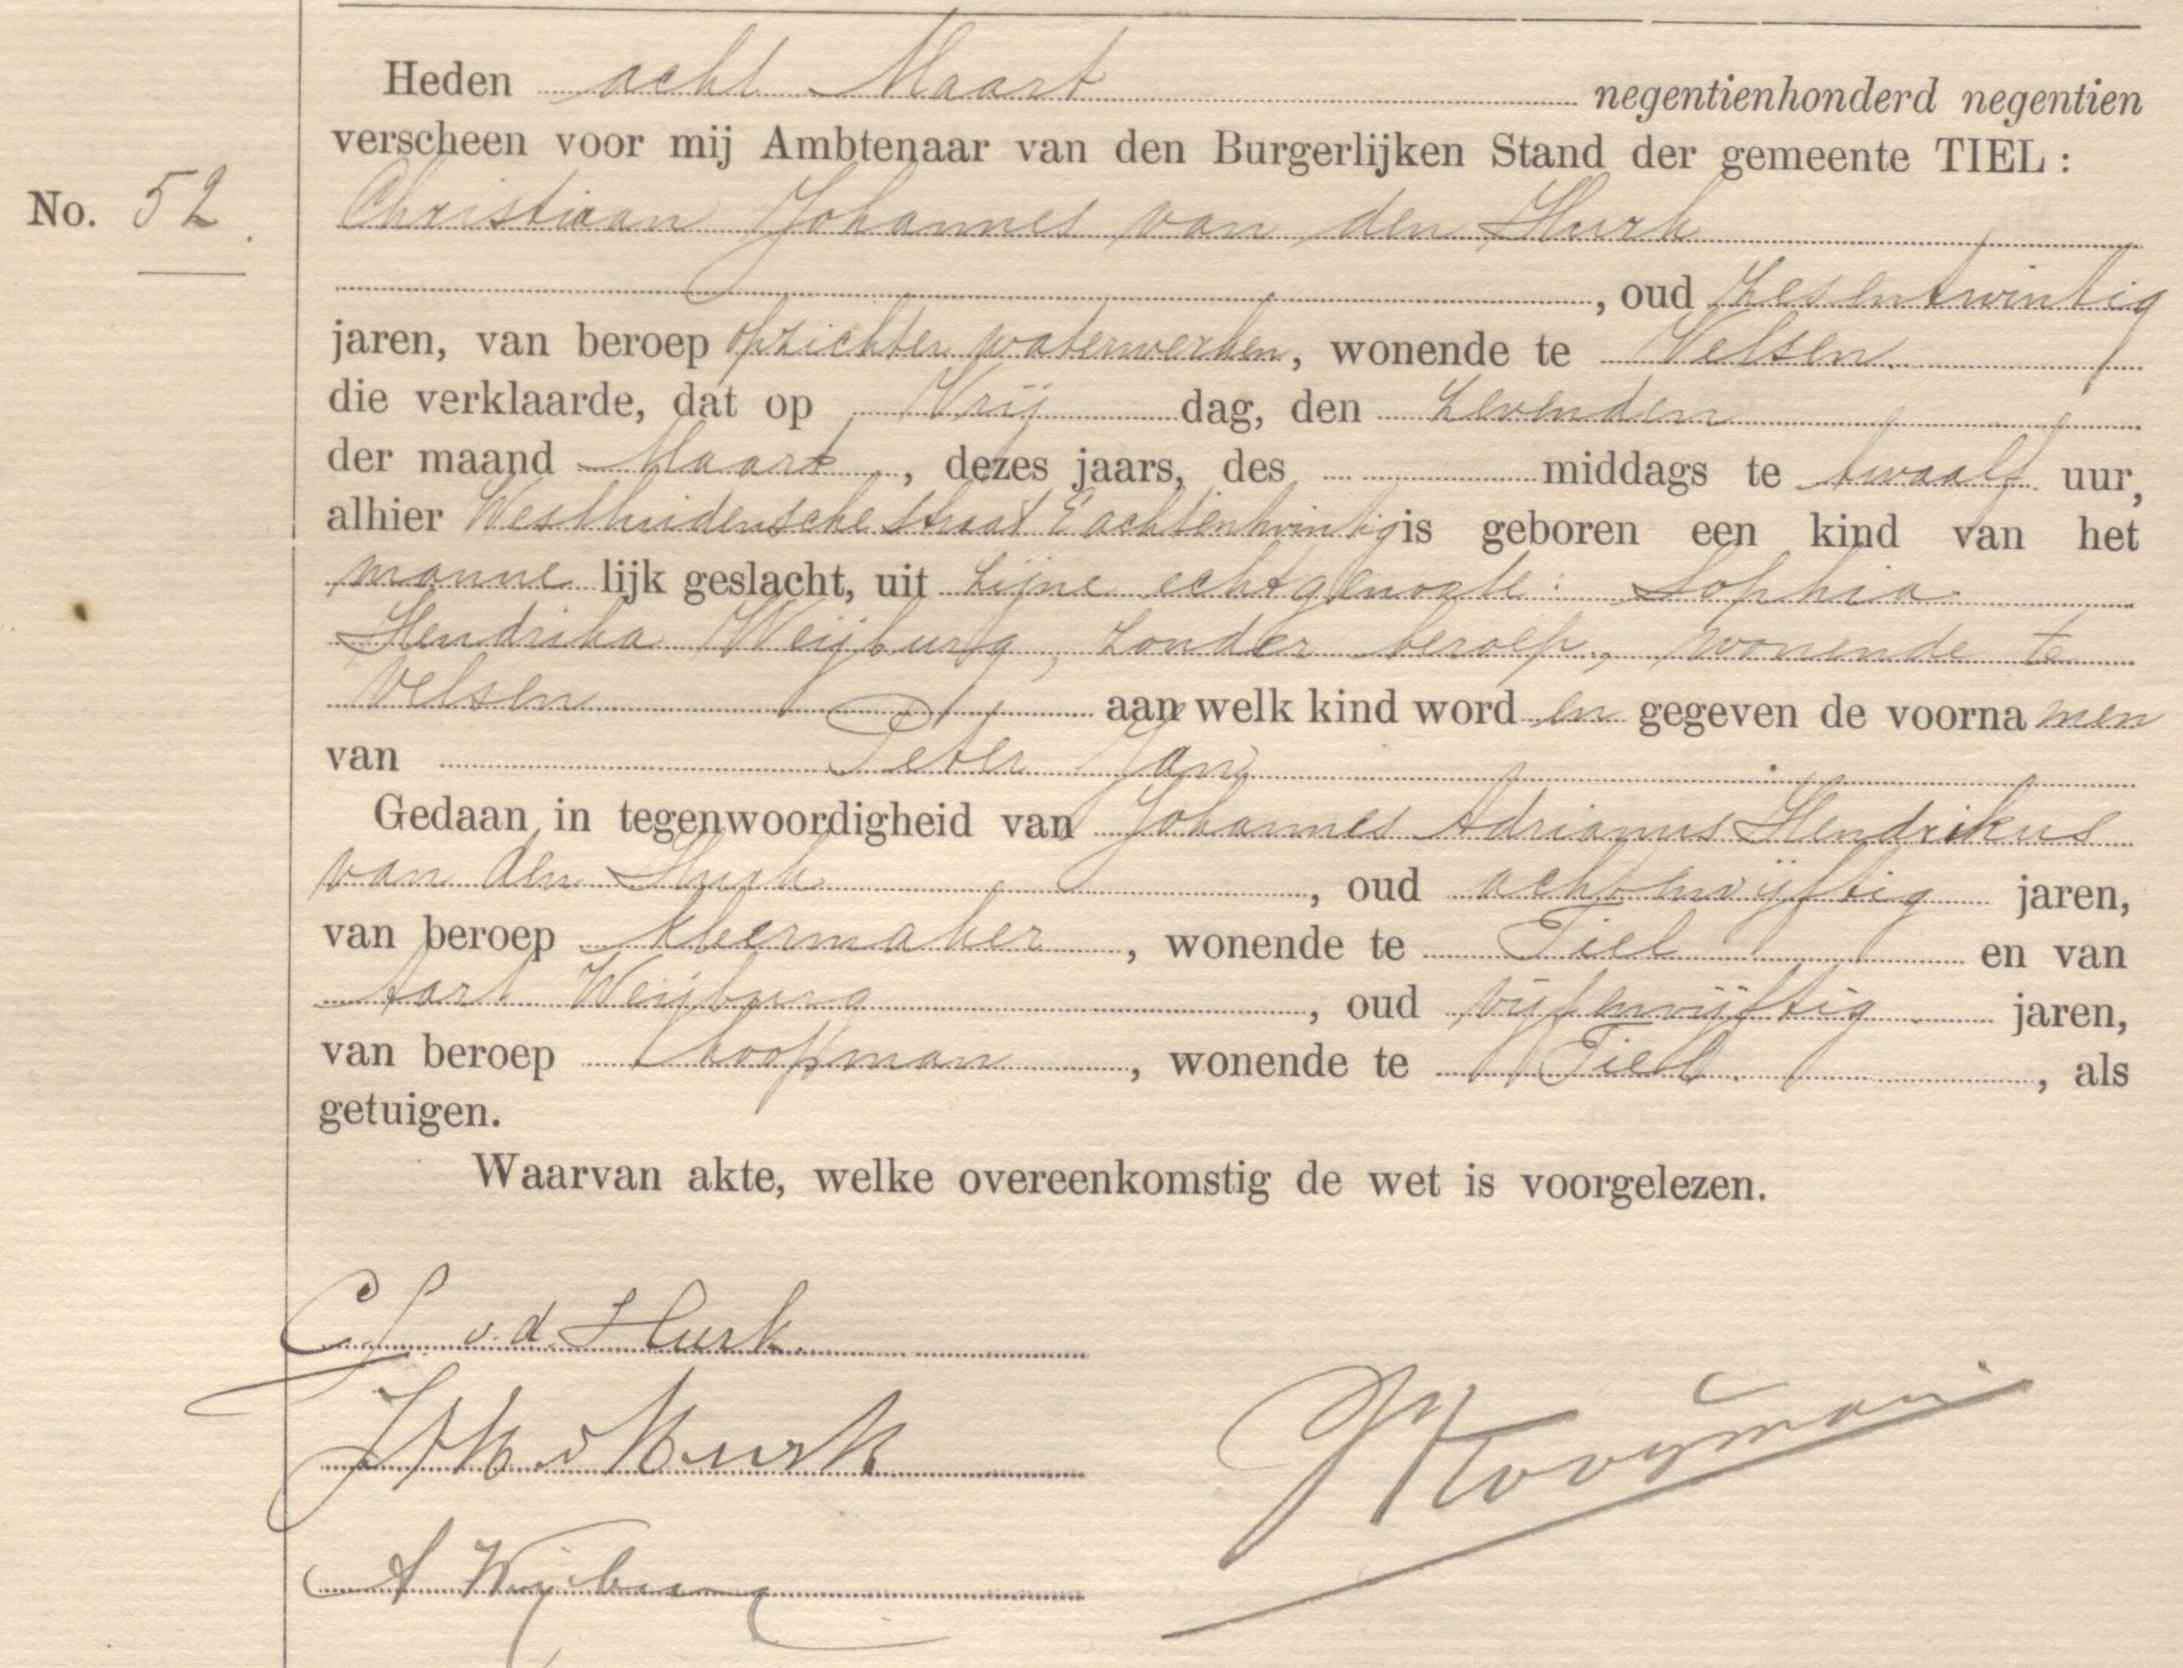 Heden acht Maart negentienhonderd negentien
verscheen voor mij Ambtenaar van den Burgerlijken Stand der gemeente TIEL:
No. 52.
Christiaan Johannes van den Hurk
, oud zesentwintig
jaren, van beroep opzichter waterwerken, wonende te Velsen
die verklaarde, dat op Vrijdag, den zevenden
der maand Maart, dezes jaars, des middags te twaalf uur,
alhier Westluidensche straat E achtentwintig is geboren een kind van het
mannelijk geslacht, uit zijne echtgenoote: Sophia
Hendrika Weijburg, zonder beroep, wonende te
Velsen aan welk kind worden gegeven de voornamen
van Peter Jan
Gedaan in tegenwoordigheid van Johannes Adrianus Hendrikus
van den Hurk, oud achtenvijftig jaren,
van beroep kleermaker, wonende te Tiel en van
Aart Weijburg, oud vijfenvijftig jaren,
van beroep koopman, wonende te Tiel, als
getuigen.
Waarvan akte, welke overeenkomstig de wet is voorgelezen.
C.J. v.d. Hurk.
JAH v Hurk
JKooijman
A Weijburg